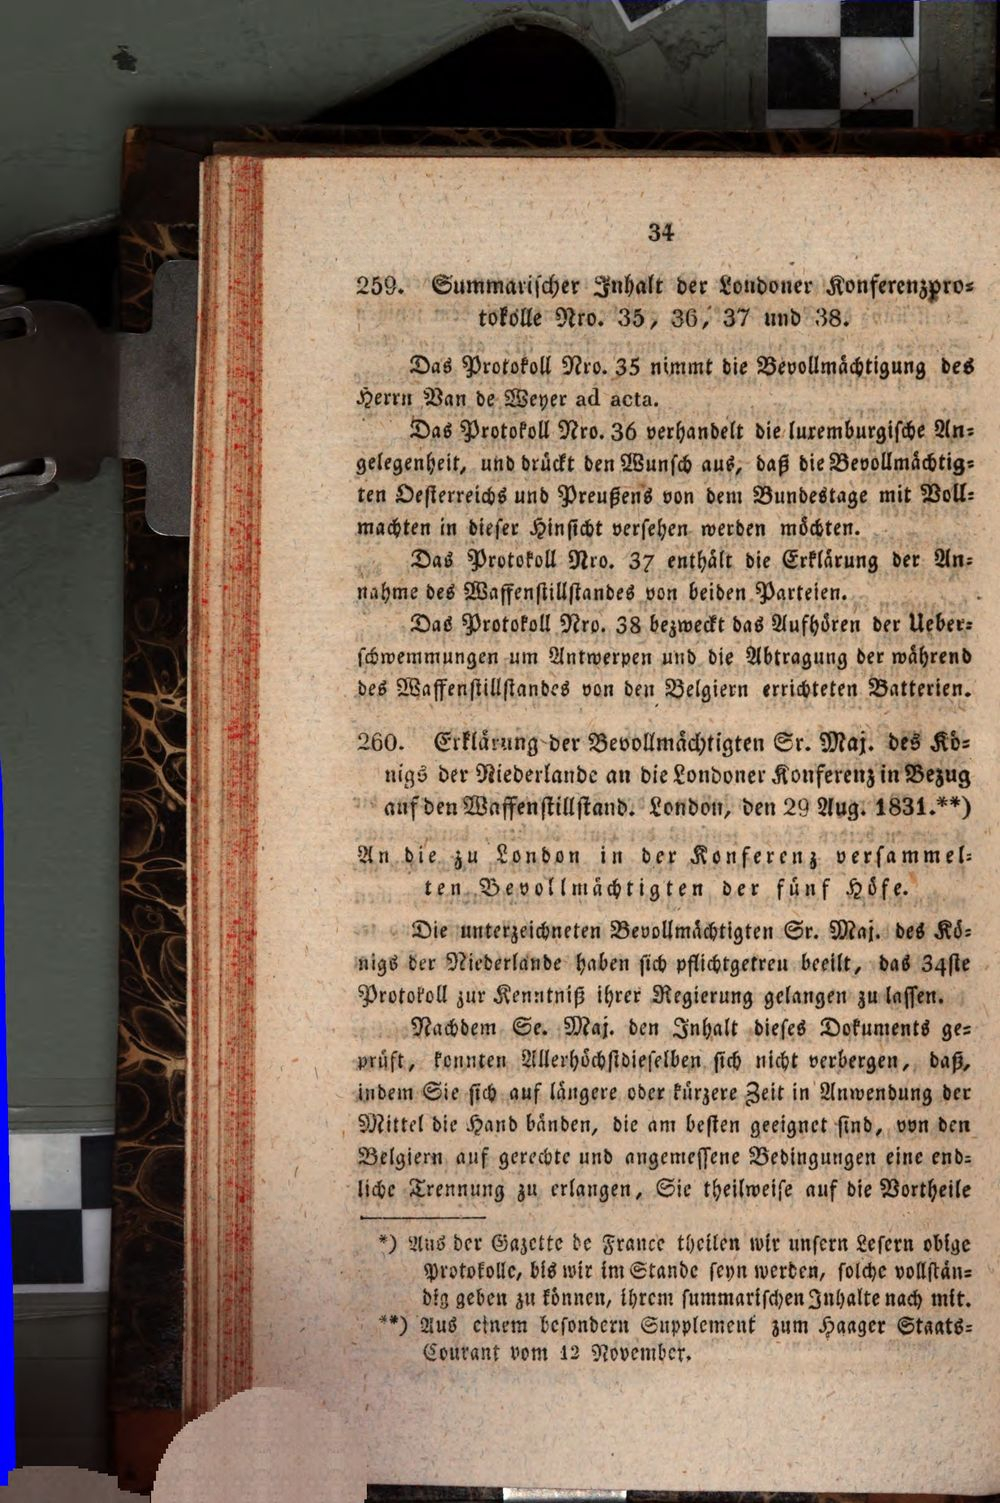 34
259. Summarischer Inhalt der Londoner Konferenzpro-
tokolle Nro. 35, 36, 37 und 38.
Das Protokoll Nro. 35 nimmt die Bevollmächtigung des
Herrn Van de Weyer ad acta.
Das Protokoll Nro. 36 verhandelt die luxemburgische An-
gelegenheit, und drückt den Wunsch aus, daß die Bevollmächtig-
ten Oesterreichs und Preußens von dem Bundestage mit Voll-
machten in dieser Hinsicht versehen werden möchten.
Das Protokoll Nro. 37 enthält die Erklärung der An-
nahme des Waffenstillstandes von beiden Parteien.
Das Protokoll Nro. 38 bezweckt das Aufhören der Ueber-
schwemmungen um Antwerpen und die Abtragung der während
des Waffenstillstandes von den Belgiern errichteten Batterien.
260. Erklärung der Bevollmächtigten Sr. Maj. des Kö-
nigs der Niederlande an die Londoner Konferenz in Bezug
auf den Waffenstillstand. London, den 29 Aug. 1831.**)
An die zu London in der Konferenz versammel-
ten Bevollmächtigten der fünf Höfe.
Die unterzeichneten Bevollmächtigten Sr. Maj. des Kö-
nigs der Niederlande haben sich pflichtgetreu beeilt, das 34ste
Protokoll zur Kenntniß ihrer Regierung gelangen zu lassen.
Nachdem Se. Maj. den Inhalt dieses Dokuments ge-
prüft, konnten Allerhöchstdieselben sich nicht verbergen, daß,
indem Sie sich auf längere oder kürzere Zeit in Anwendung der
Mittel die Hand bänden, die am besten geeignet sind, von den
Belgiern auf gerechte und angemessene Bedingungen eine end-
liche Trennung zu erlangen, Sie theilweise auf die Vortheile
*) Aus der Gazette de France theilen wir unsern Lesern obige
Protokolle, bis wir im Stande seyn werden, solche vollstän-
dig geben zu können, ihrem summarischen Inhalte nach mit.
**) Aus einem besondern Supplement zum Haager Staats-
Courant vom 12 November.